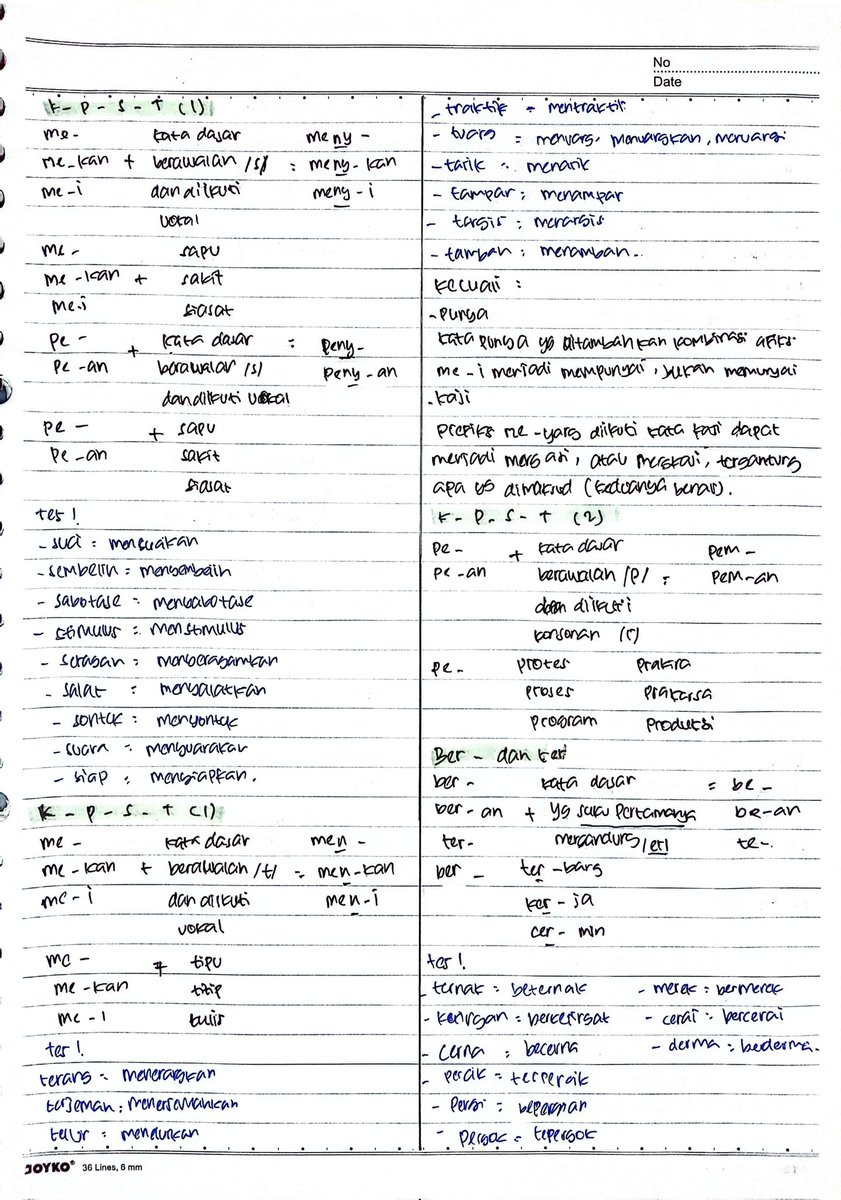 No
Date
K - P - S - T (1)
me - kata dasar meny -
me - kan + berawalan /s/ = meny - kan
me - i dan diikuti meny - i
vokal
me - sapu
me - kan + sakit
me - i siasat
pe - + kata dasar = peny -
pe - an berawalan /s/ peny - an
dan diikuti vokal
pe - + sapu
pe - an sakit
siasat
tes !
- suci =
- sembelih =
- sabotase = menyabotase
- stimulus = menstimulus
- seragam =
- salat = menyalatkan
- sontek = menyontek
- suara = menyuarakan
- siap = menyiapkan.
K - P - S - T (1)
me - kata dasar men -
me - kan + berawalan /t/ = men - kan
me - i dan diikuti men - i
vokal
me - + tipu
me - kan titip
me - i tulis
tes !
terang = menerangkan
telur =
- traktir = mentraktir
- tuang = menuang, menuangkan, menuangi
- tarik = menarik
- tampar = menampar
- tangis = menangis
- tambah = menambah.
Kecuali :
- punya
kata punya yg ditambahkan kombinasi afiks
me - i menjadi mempunyai, bukan memunyai
- kaji
prefiks me - yang diikuti kata kaji dapat
menjadi mengaji, atau mengkaji, tergantung
apa yg dimaksud (keduanya benar).
K - P - S - T (2)
pe - + kata dasar pem -
pe - an berawalan /p/ = pem - an
dan diikuti
konsonan /r/
pe - protes prakira
proses prakarsa
program produksi
Ber - dan ter
ber - kata dasar = be -
ber - an + yg suku pertamanya be - an
ter - mengandung /er/ te -
ber - ter - bang
ker - ja
cer - min
tes !
- ternak = beternak - merek = bermerek
- cerai = bercerai
- cerna = becerna - derma = bederma.
- percik = terpercik
- pergi =
- pergok = tepergok
JOYKO® 36 Lines, 6 mm